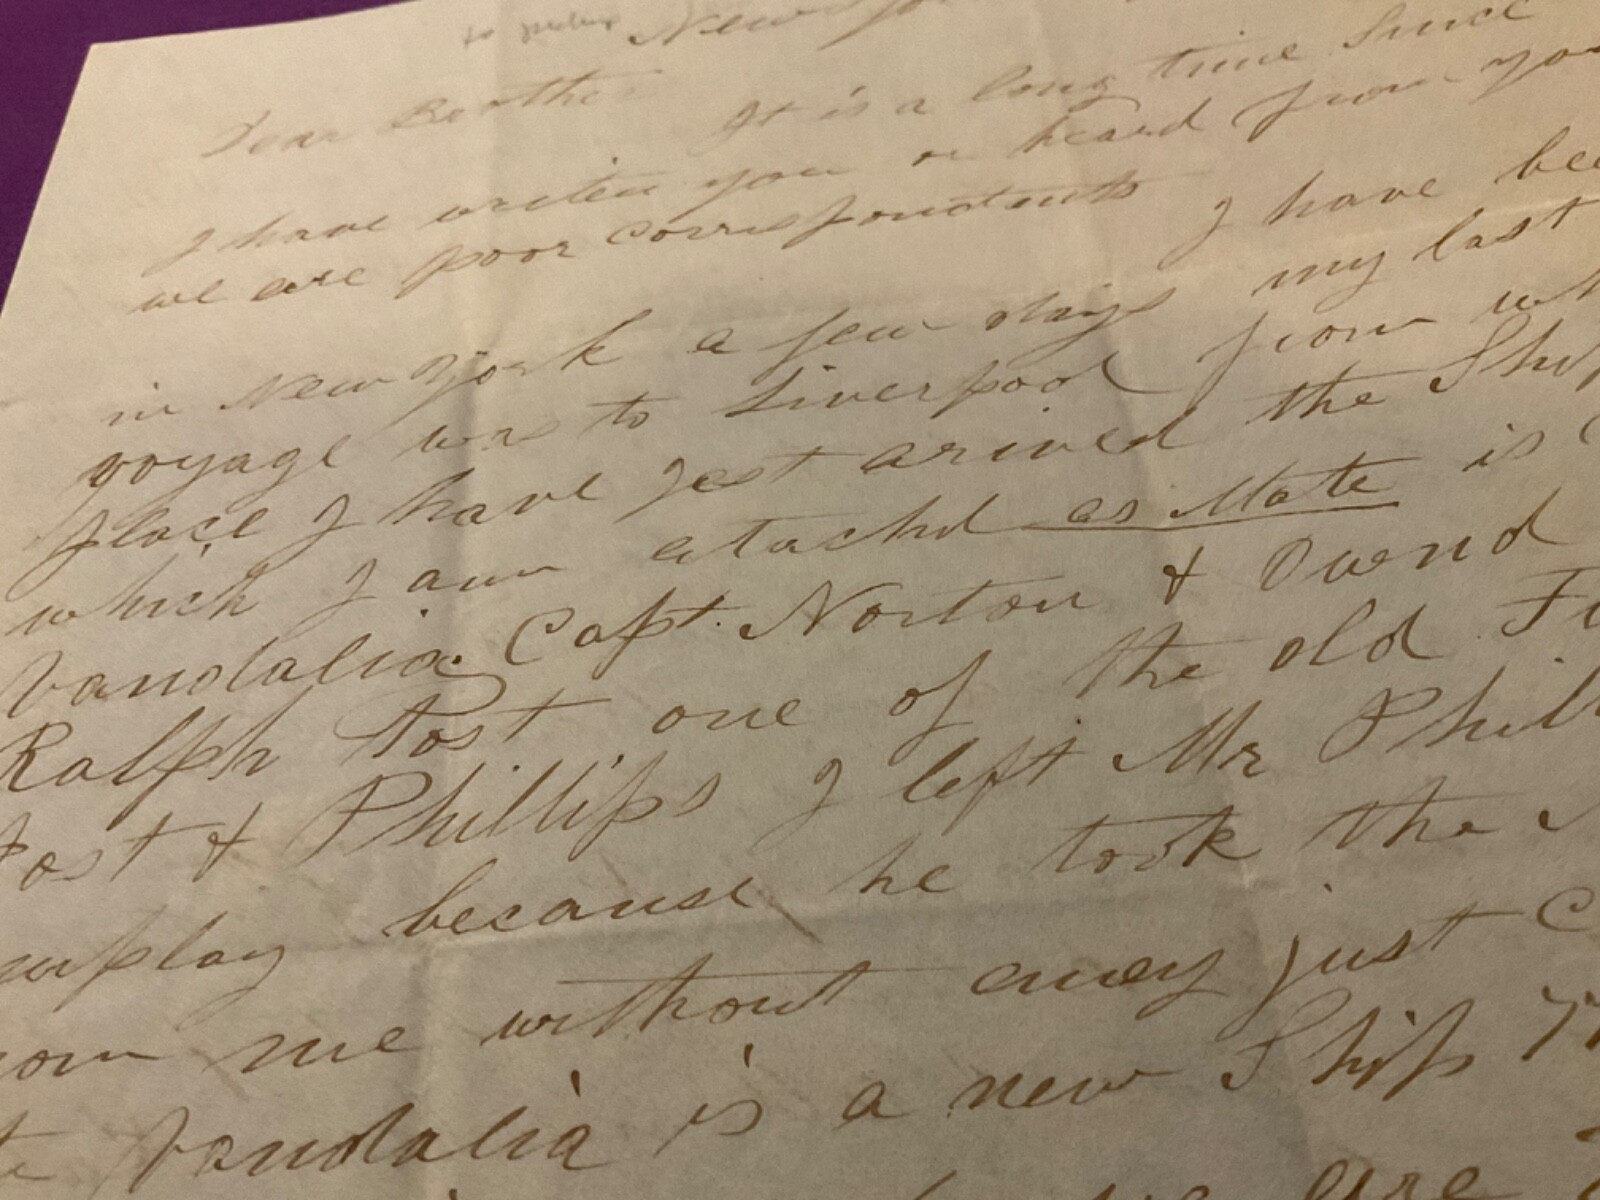 New
Dear Brother
It is a long time Since
I have writen you or heard from you
we are poor correspondents
I have bee
in New York a few days my last
voyage was to Liverpool from wh
place I have jest arived the Ship
which I am atachd as Mate is
Vandalia Capt. Norton & Ownd
Ralph Post one of the old Fi
Post & Phillips I left Mr Phill
employ because he took the
from me without eney just C
Vandalia is a new Ship
are